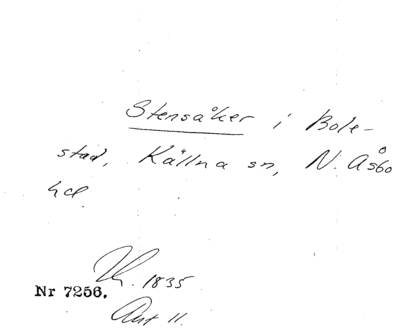 Stensåker i Bole-
stad, Källna sn, N. Åsbo
hd
1835
Nr 7256.
Akt 11.